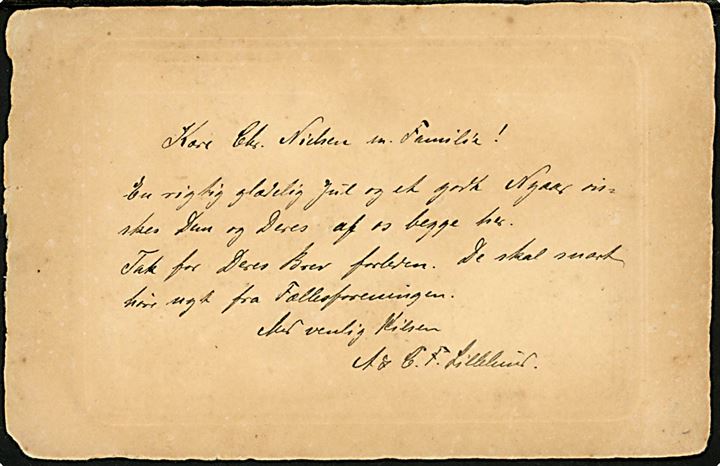 Kære Chr. Nielsen m. Familie!
En rigtig glædelig Jul og et godt Nytaar øn=
skes Dem og Deres af os begge her.
Tak for Deres Brev forleden. De skal snart
høre nyt fra Fællesforeningen.
Med venlig Hilsen
A & C. F. Lillelund.